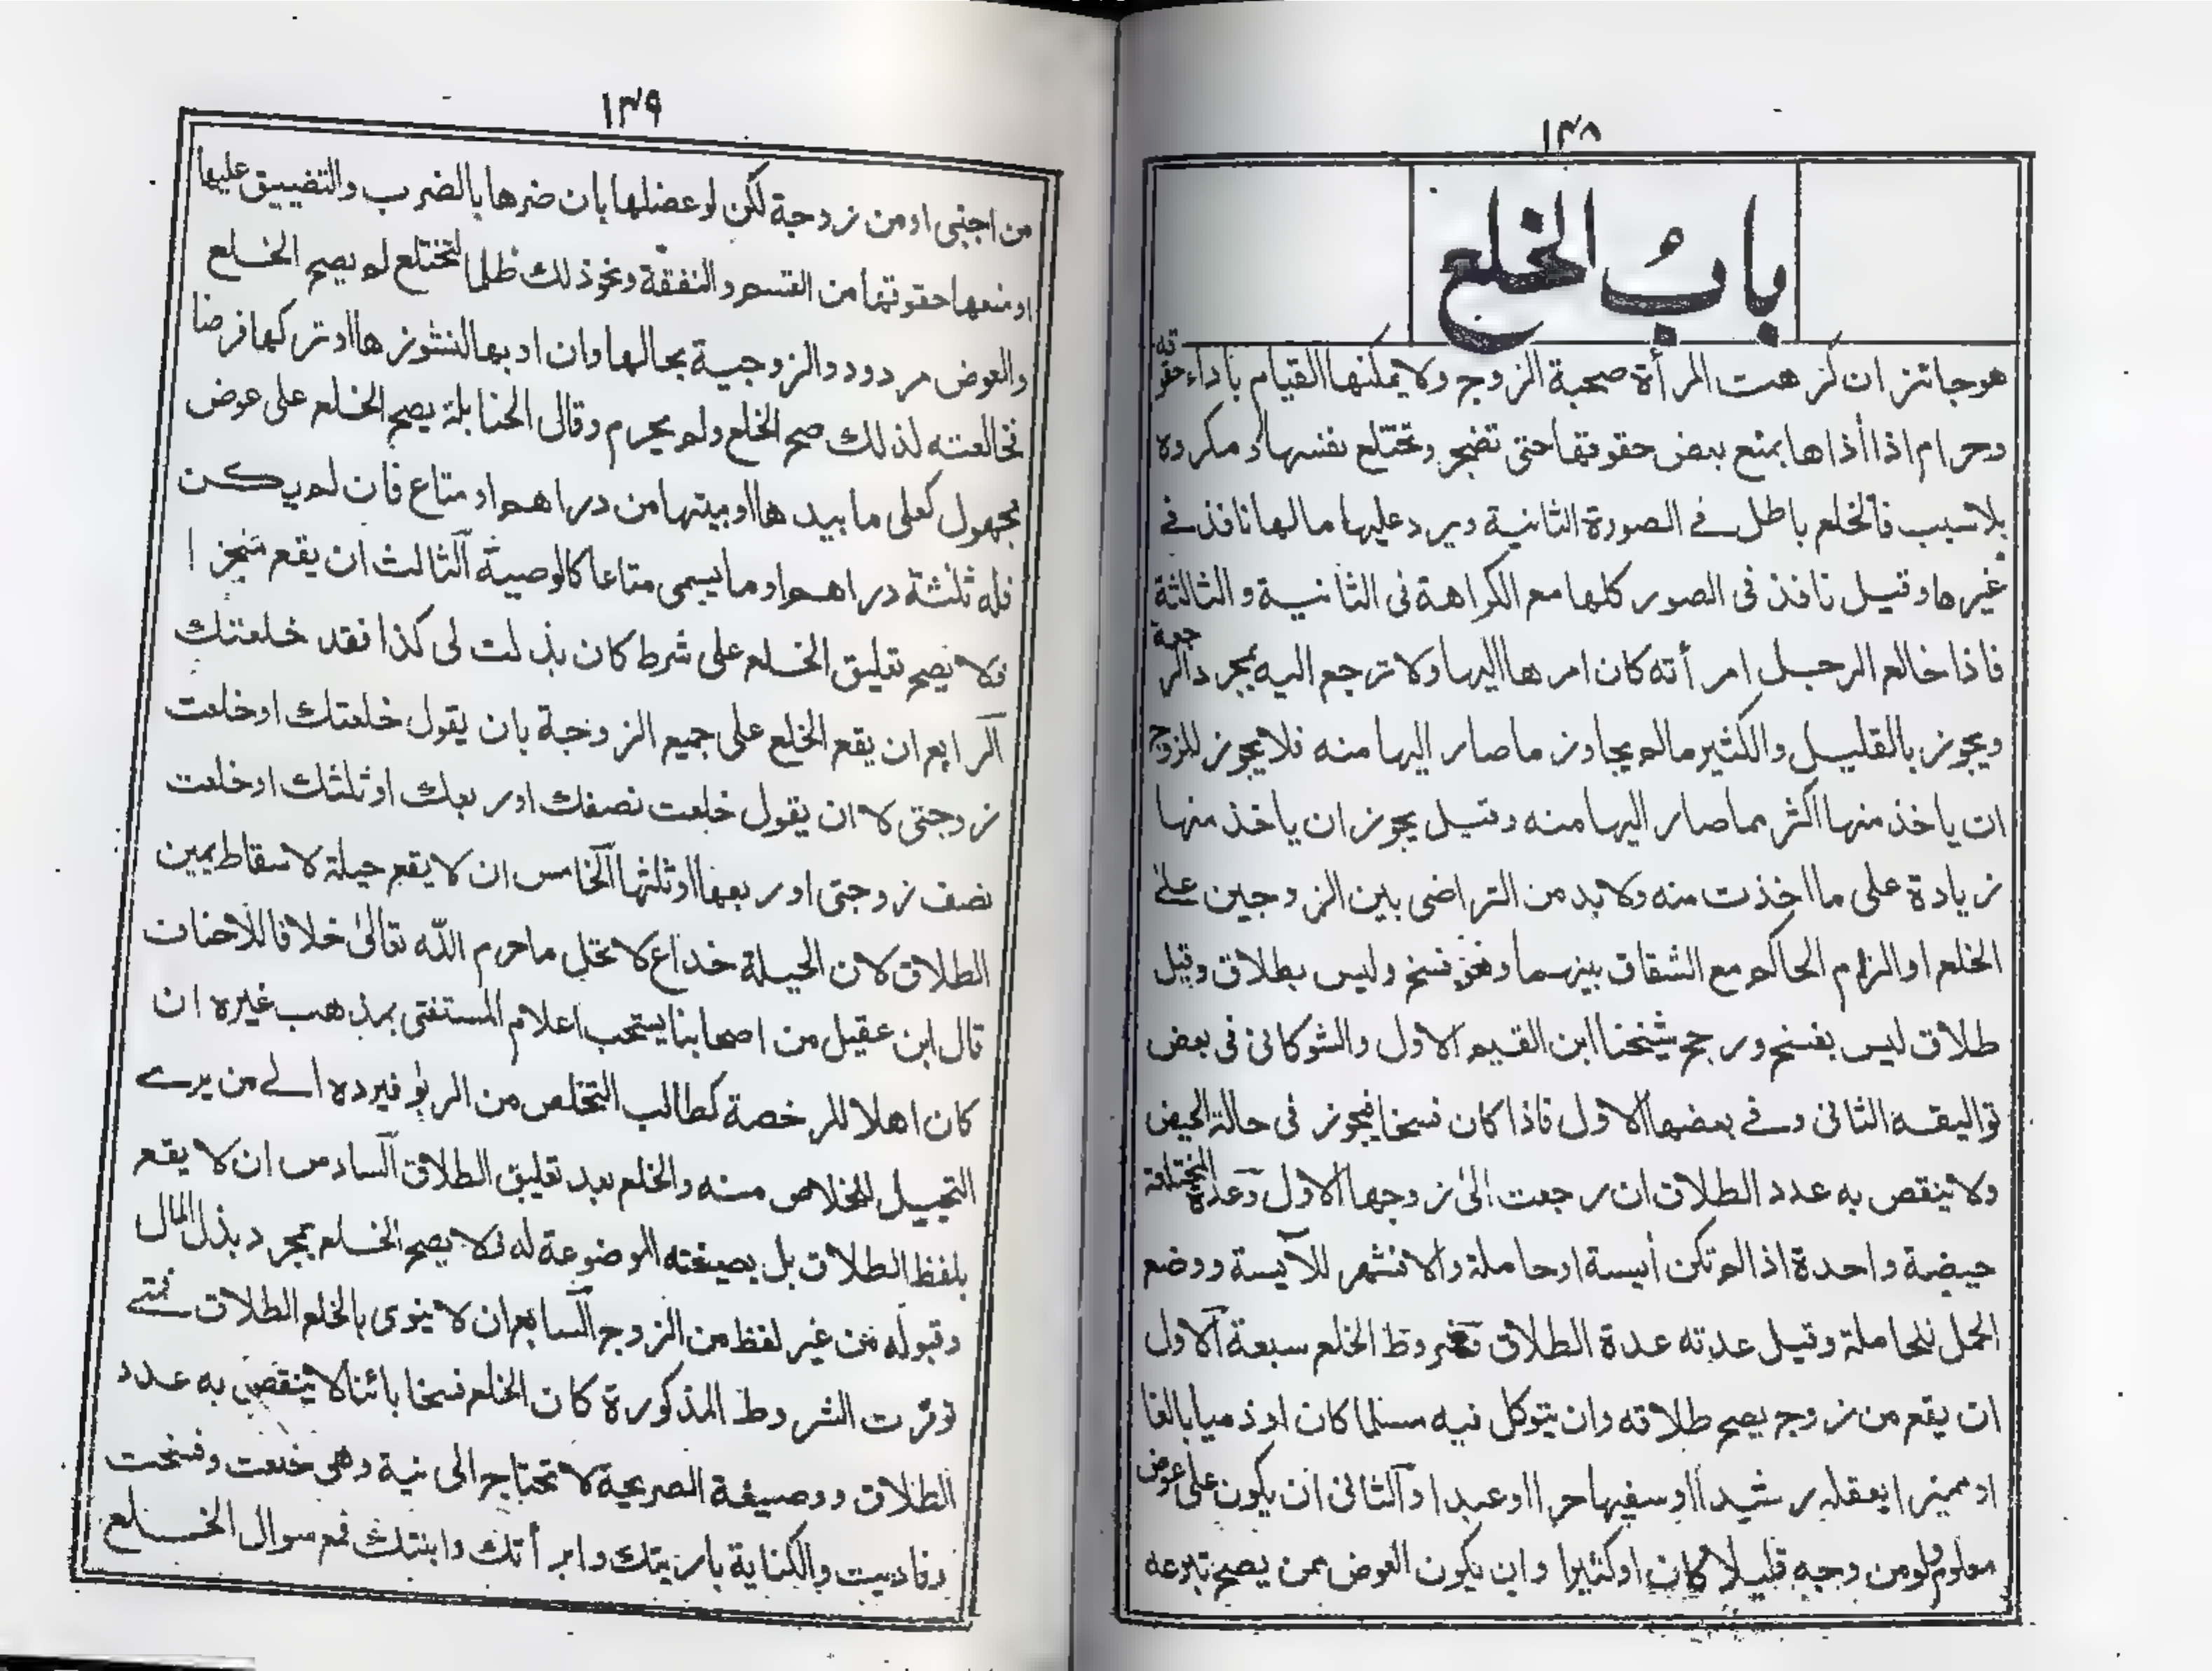 ١٣٨
باب الخلع
هو جائز ان كرهت المرأة صحبة الزوج ولا يمكنها القيام بأداء حقوقه
وحرام اذا أذاها بمنع بعض حقوقها حتى تضجر وتختلع نفسها ومكروه
بلا سبب فالخلع باطل في الصورة الثانية ويرد عليها مالها نافذ في
غيرها وقيل نافذ فى الصور كلها مع الكراهة فى الثانية و الثالثة
فاذا خالع الرجل امرأته كان امرها اليها ولا ترجع اليه بمجرد الرجعة
ويجوز بالقليل والكثير مالم يجاوز ما صار اليها منه فلا يجوز للزوج
ان ياخذ منها اكثر مما صار اليها منه وقيل يجوز ان ياخذ منها
زيادة على ما اخذت منه ولا بد من التراضى بين الزوجين على
الخلع او الزام الحاكم مع الشقاق بينهما وهو فسخ وليس بطلاق وقيل
طلاق ليس بفسخ ورجح شيخنا ابن القيم الاول والشوكانى فى بعض
تواليفه الثانى وفي بعضها الاول فاذا كان فسخا فيجوز فى حالة الحيض
ولا ينقص به عدد الطلاق ان رجعت الى زوجها الاول وعدة المختلعة
حيضة واحدة اذا لم تكن أيسة او حاملة والا فشهر للآيسة ووضع
الحمل للحاملة وقيل عدته عدة الطلاق وشروط الخلع سبعة الاول
ان يقع من زوج يصح طلاقه وان يتوكل فيه مسلما كان او ذميا بالغا
او مميزا يعقله رشيدا او سفيها حرا او عبدا والثانى ان يكون على عوض
معلوم ولو من وجه قليلا كان او كثيرا وان يكون العوض ممن يصح تبرعه
١٣٩
من اجنبى او من زوجة لكن لو عضلها بان ضرها بالضرب والتضييق عليها
او منعها حقوقها من القسم والنفقة ونحو ذلك ظلما لتختلع لم يصح الخلع
والعوض مردود والزوجية بحالها وان ادبها لنشوزها او تركها فرضا
فخالعته لذلك صح الخلع ولم يحرم وقال الحنابلة يصح الخلع على عوض
مجهول كعلى ما بيدها او بيتها من دراهم او متاع فان لم يكن
فله ثلثة دراهم او ما يسمى متاعا كالوصية الثالث ان يقع منجزا
فلا يصح تعليق الخلع على شرط كان بذلت لى كذا فقد خلعتك
الرابع ان يقع الخلع على جميع الزوجة بان يقول خلعتك او خلعت
زوجتى لا ان يقول خلعت نصفك او ربعك او ثلثك او خلعت
نصف زوجتى او ربعها او ثلثها الخامس ان لا يقع حيلة لاسقاط يمين
الطلاق لان الحيلة خداع لا تحل ما حرم الله تعالى خلافا للاحناف
قال ابن عقيل من اصحابنا يستحب اعلام المستفتى بمذهب غيره ان
كان اهلا للرخصة كطالب التخلص من الربو فيرده الى من يرے
التحيل للخلاص منه والخلع بعد تعليق الطلاق السادس ان لا يقع
بلفظ الطلاق بل بصيغته الموضوعة له فلا يصح الخلع بمجرد بذل المال
وقبوله من غير لفظ من الزوج السابع ان لا ينوى بالخلع الطلاق فمتے
توفرت الشروط المذكورة كان الخلع فسخا بائنا لا ينقص به عدد
الطلاق وصيغة الصريحة لا تحتاج الى نية وهى خلعت وفسخت
وفاديت والكناية باريتك وابرأتك وابنتك فمع سوال الخلع